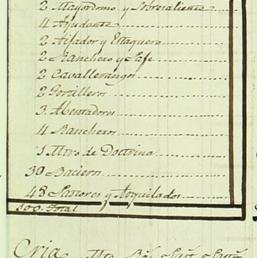 2 Mayordomo y Sobresaliente
4 Ayudante
2 Afilador y Estaquero
2 Ranchero y Gefe
2 Cavallerangos
2 Portilleros
3 Abentadores
4 Rancheros
1 Moro de Doctrina
30 Vacieros
48 Pastores y Alquilados
100 Total
Cria